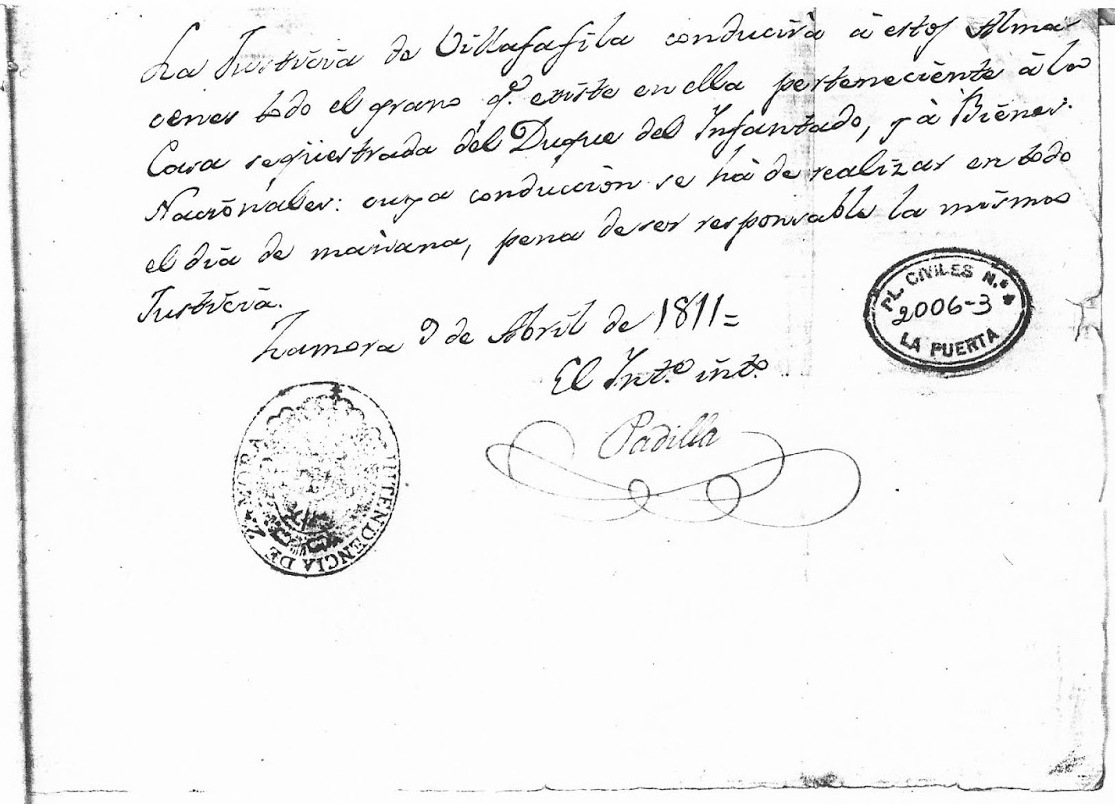 La Justicia de Villafafila conducirà à estos Alma-
cenes todo el grano q.e existe en ella perteneciente à la
Casa seqüestrada del Duque del Infantado, y à Biénes
Nacionales: cuya conduccion se hà de realizar en todo
el dia de mañana, pena de ser responsable la misma
Justicia.
Zamora 9 de Abril de 1811=
El Int.e int.o
Padilla
INTENDENCIA DE ZAMORA
PL. CIVILES N.º
2006-3
LA PUERTA